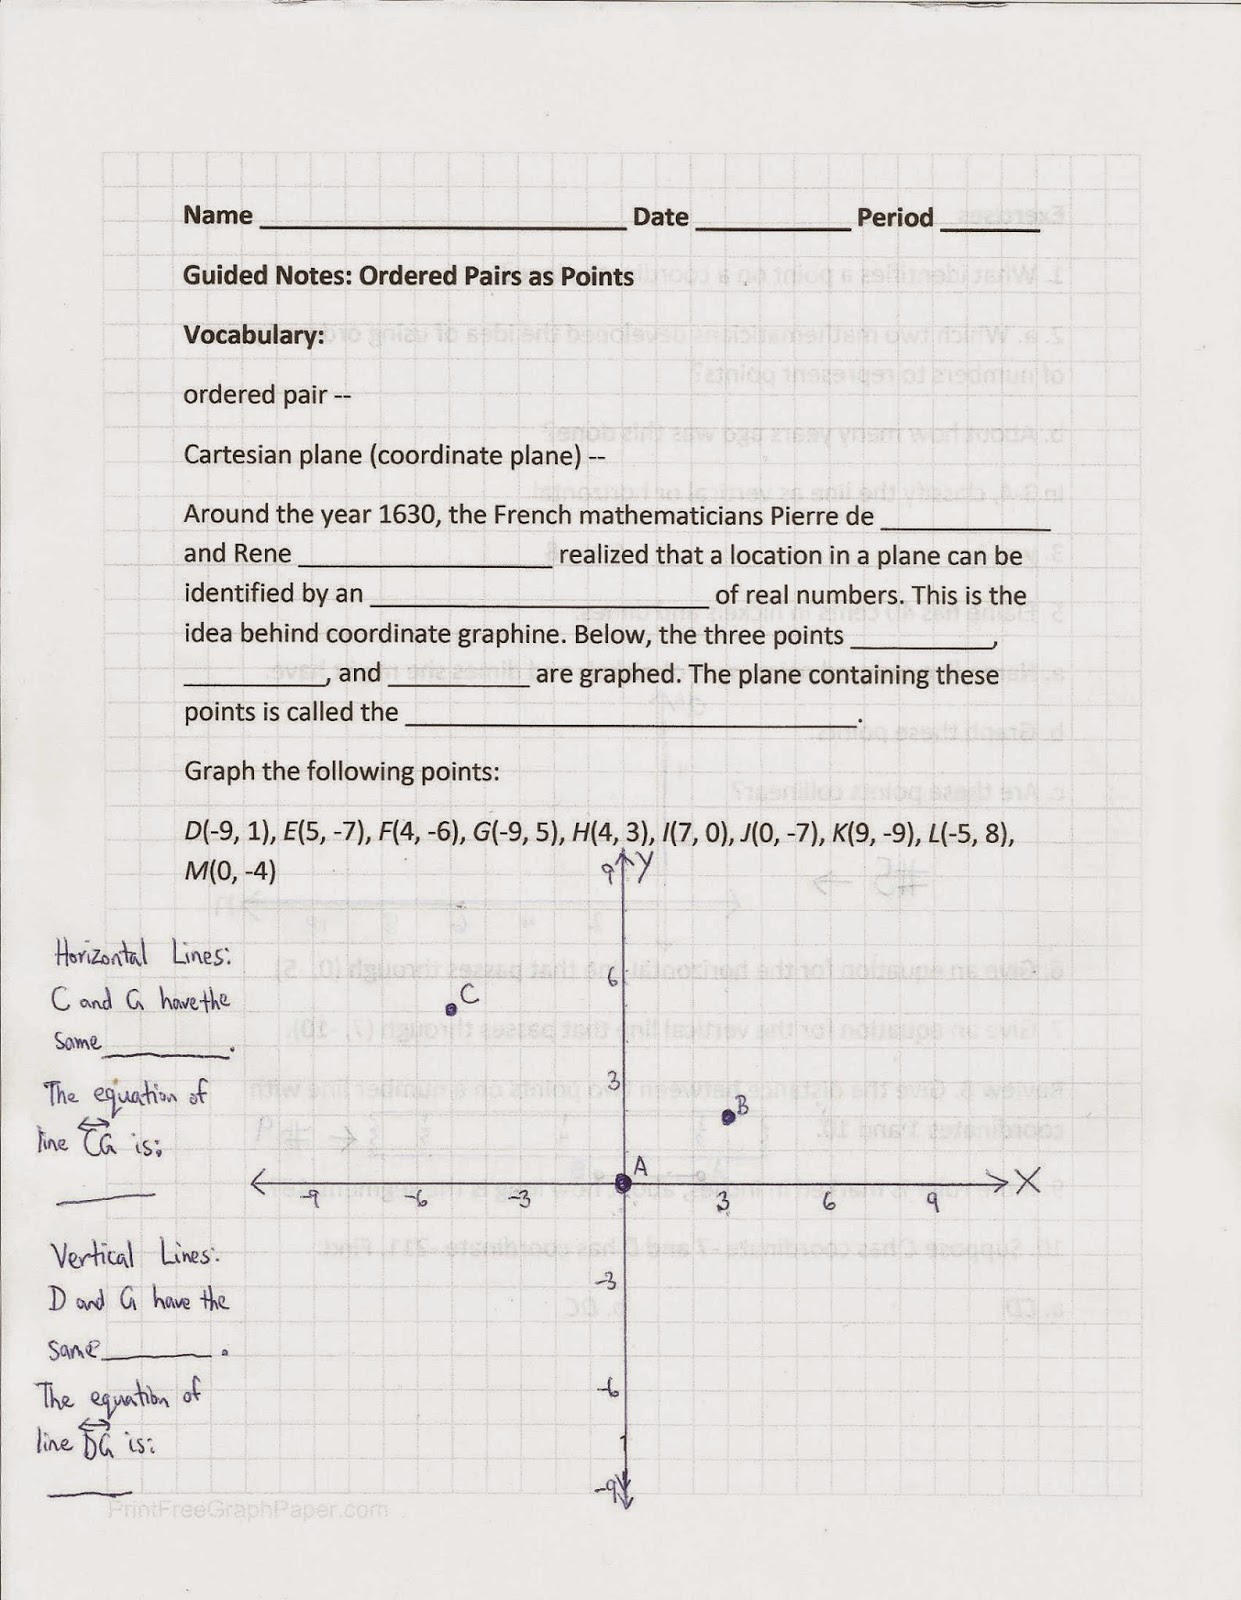 Name ____________ Date ________ Period ______
Guided Notes: Ordered Pairs as Points
Vocabulary:
ordered pair --
Cartesian plane (coordinate plane) --
Around the year 1630, the French mathematicians Pierre de ____________
and Rene ____________ realized that a location in a plane can be
identified by an ____________ of real numbers. This is the
idea behind coordinate graphine. Below, the three points __________,
__________, and __________ are graphed. The plane containing these
points is called the ____________.
Graph the following points:
D(-9, 1), E(5, -7), F(4, -6), G(-9, 5), H(4, 3), I(7, 0), J(0, -7), K(9, -9), L(-5, 8),
M(0, -4)
9 Y
Horizontal Lines:
C and G have the
same ________.
The equation of
line CG is:
________
6
C
3
B
A
-9 -6 -3 3 6 9 X
-3
-6
-9
Vertical Lines:
D and G have the
same ________.
The equation of
line DG is:
________
PrintFreeGraphPaper.com